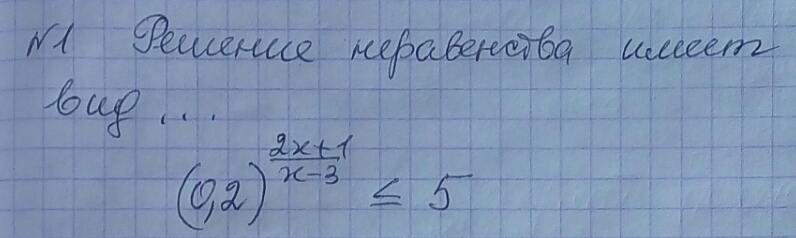 N1 Решение неравенства имеет
вид ...
(0,2)^{\frac{2x+1}{x-3}} ≤ 5